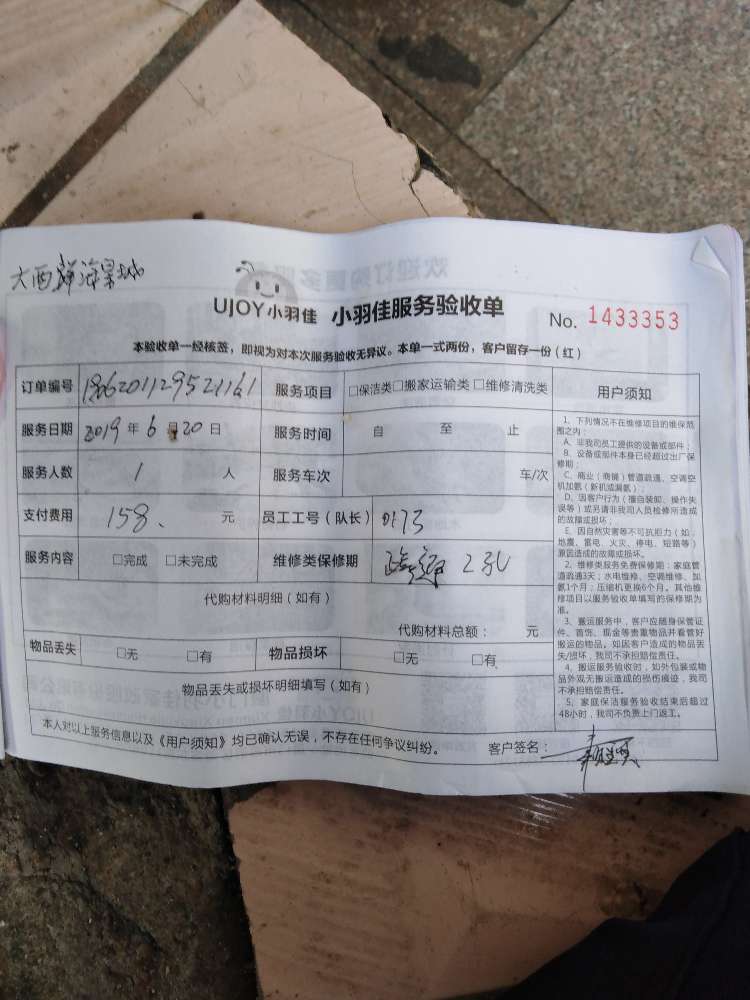 大西洋海景城
UJOY小羽佳 小羽佳服务验收单 No. 1433353
本验收单一经核签，即视为对本次服务验收无异议。本单一式两份，客户留存一份（红）
订单编号 服务项目 □保洁类□搬家运输类□维修清洗类
服务日期 2019 年 6 月 20 日 服务时间 自 至 止
服务人数 1 人 服务车次 车/次
支付费用 158、 元 员工工号（队长） 0173
服务内容 □完成 □未完成 维修类保修期
代购材料明细（如有）
代购材料总额： 元
物品丢失 □无 □有 物品损坏 □无 □有
物品丢失或损坏明细填写（如有）
本人对以上服务信息以及《用户须知》均已确认无误，不存在任何争议纠纷。 客户签名：
用户须知
1、下列情况不在维修项目的维保范
围之内：
A、非我司员工提供的设备或部件；
B、设备或部件本身已经超过出厂保
修期；
C、商业（商铺）管道疏通、空调空
机加氨（新机或漏氨）；
D、因客户行为（擅自装卸、操作失
误等）或另请非我司人员检修所造成
的故障或损坏；
E、因自然灾害等不可抗拒力（如：
地震、雷电、火灾、停电、短路等）
原因造成的故障或损坏。
2、维修类服务免费保修期：家庭管
道疏通3天；水电维修、空调维修、加
氨1个月；压缩机更换6个月。其他维
修项目以服务验收单填写的保修期为
准。
3、搬运服务中，客户应随身保管证
件、首饰、现金等贵重物品并看管好
搬运的物品。如因客户造成的物品丢
失/损坏，我司不承担赔偿责任。
4、搬运服务验收时，如外包装或物
品外观无搬运造成的损伤痕迹，我司
不承担赔偿责任。
5、家庭保洁服务验收结束后超过
48小时，我司不负责上门返工。